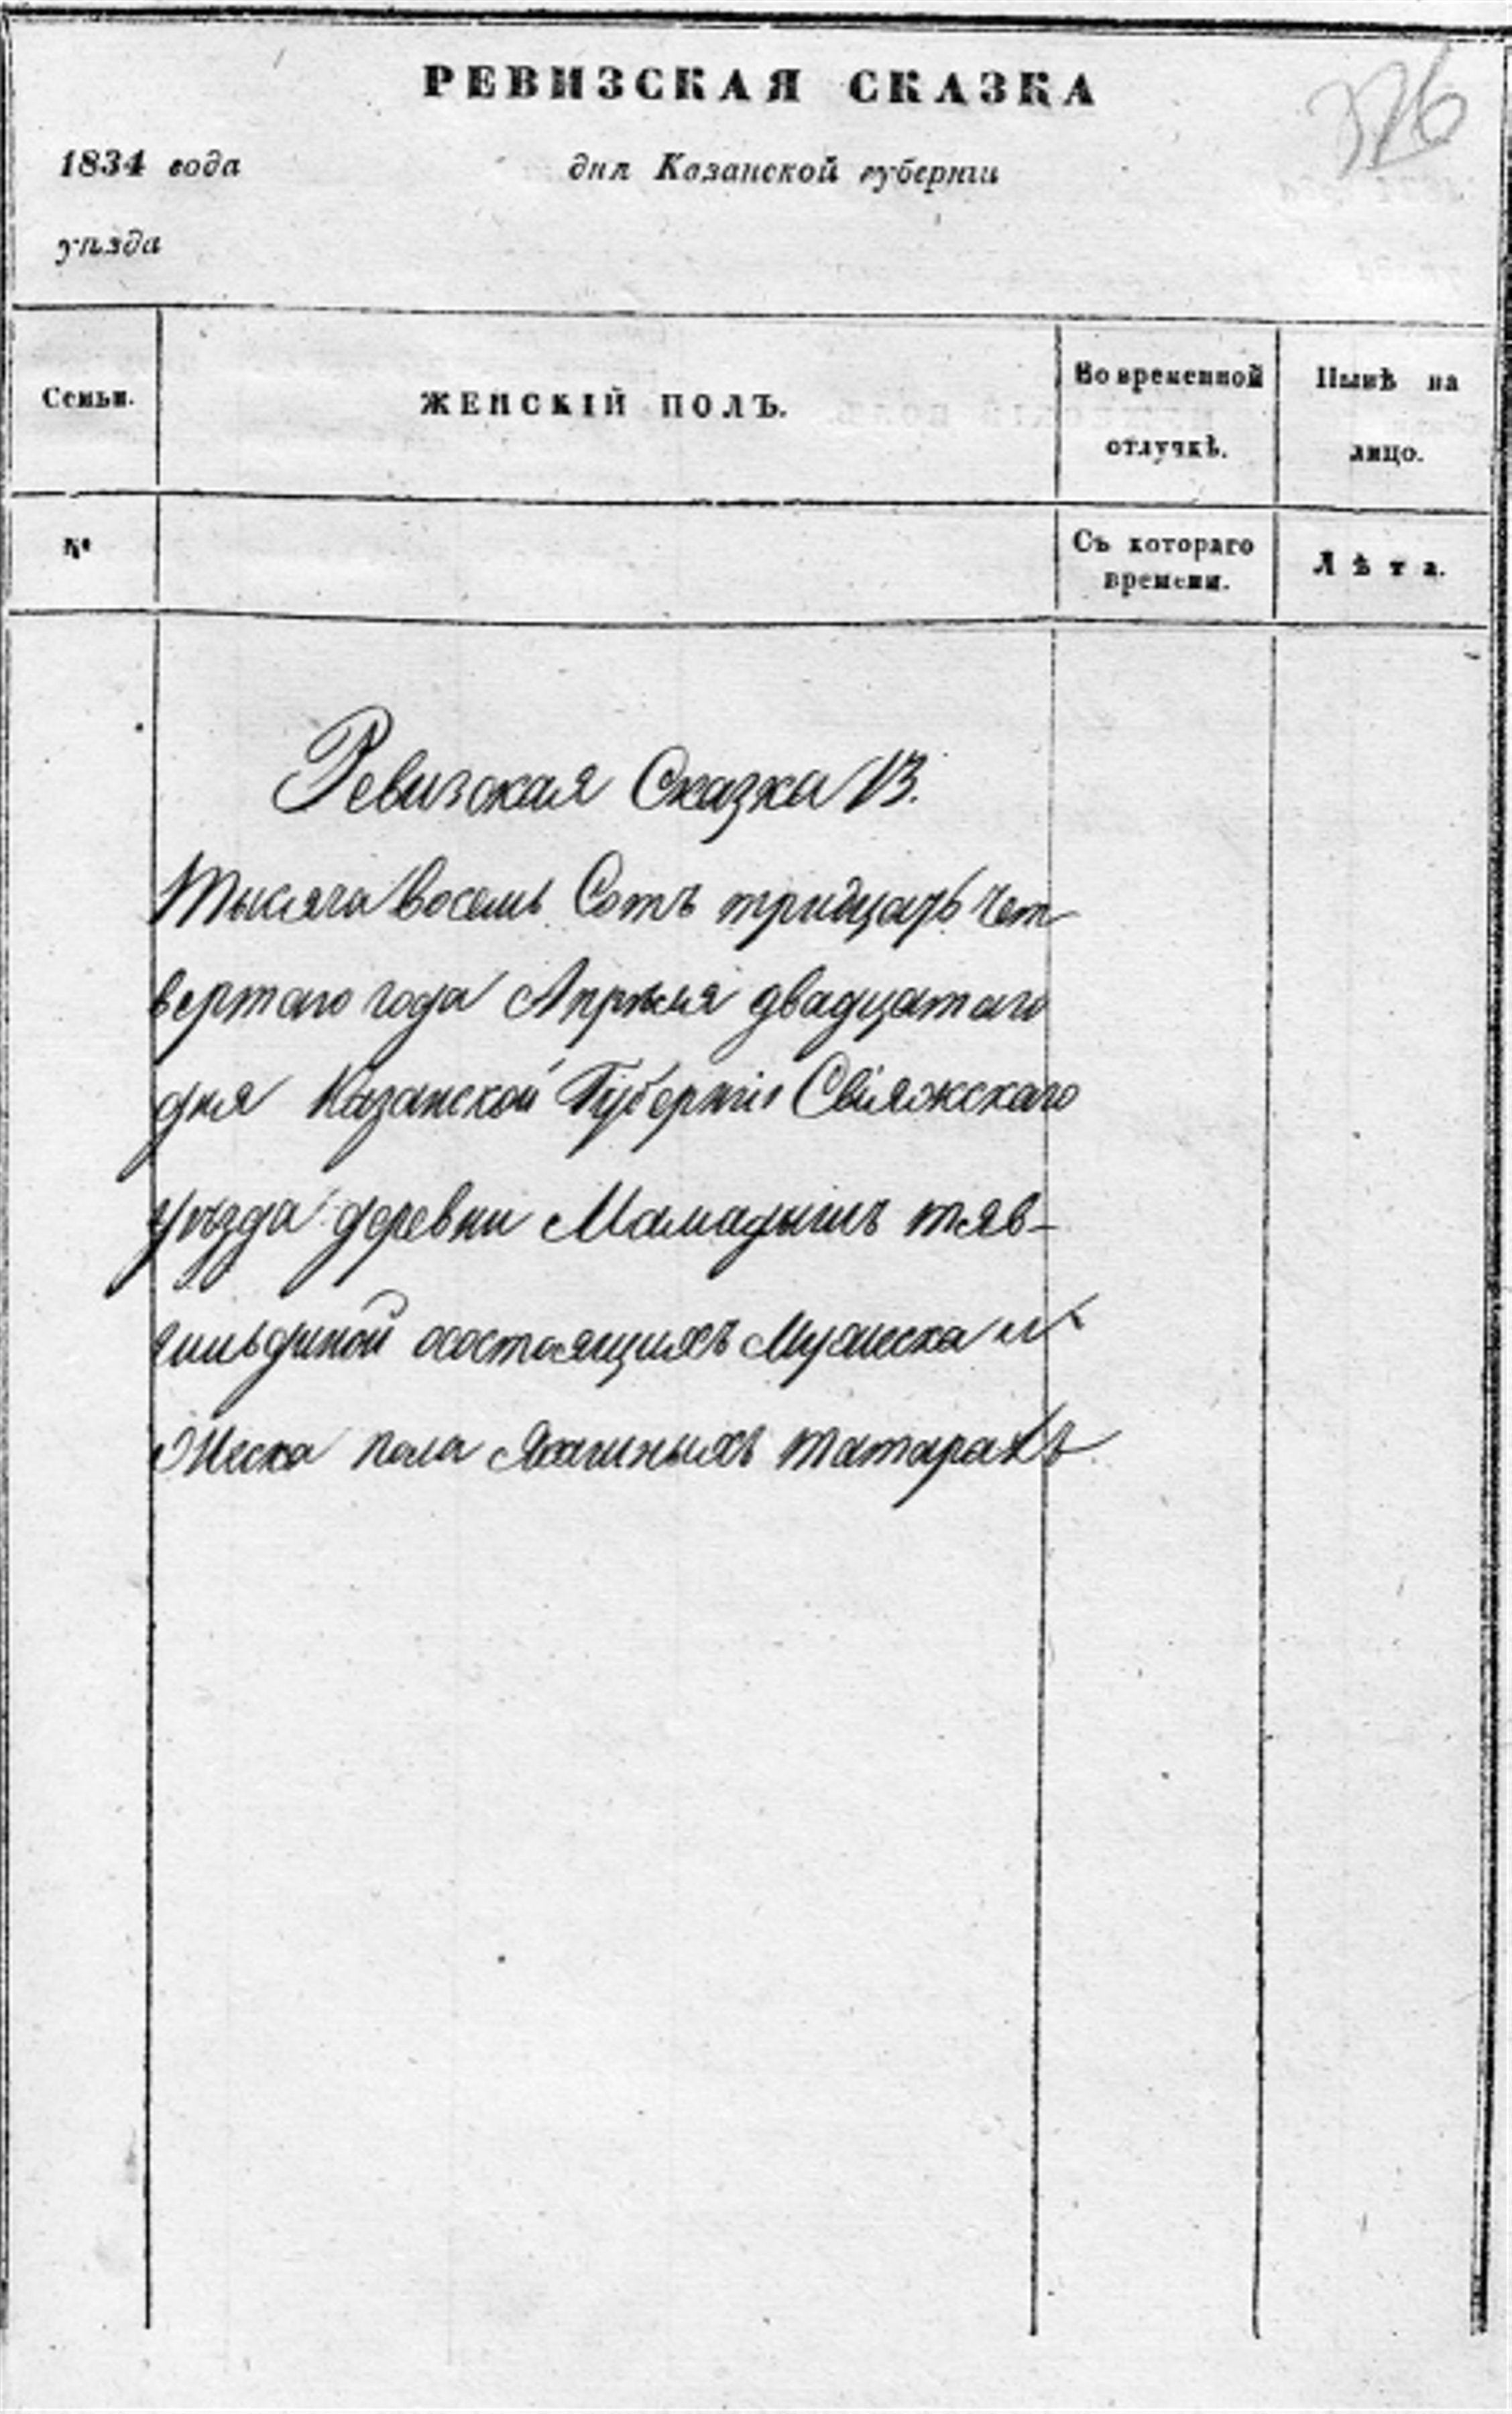 РЕВИЗСКАЯ СКАЗКА
326
1834 года дня Казанской губерніи
уѣзда
Семьи. ЖЕНСКІЙ ПОЛЪ. Во временной отлучкѣ. Нынѣ на лицо.
№ Съ котораго времени. Лѣта.
Ревизская Сказка
Тысяча восемь Сотъ тридцать чет
вертаго года Апрѣля двадцатаго
дня Казанской Губерніи Свіяжскаго
уѣзда деревни Мамадышъ тяв-
кильдиной осостоящихъ Мужеска и
Женска пола Ясашныхъ татарахъ